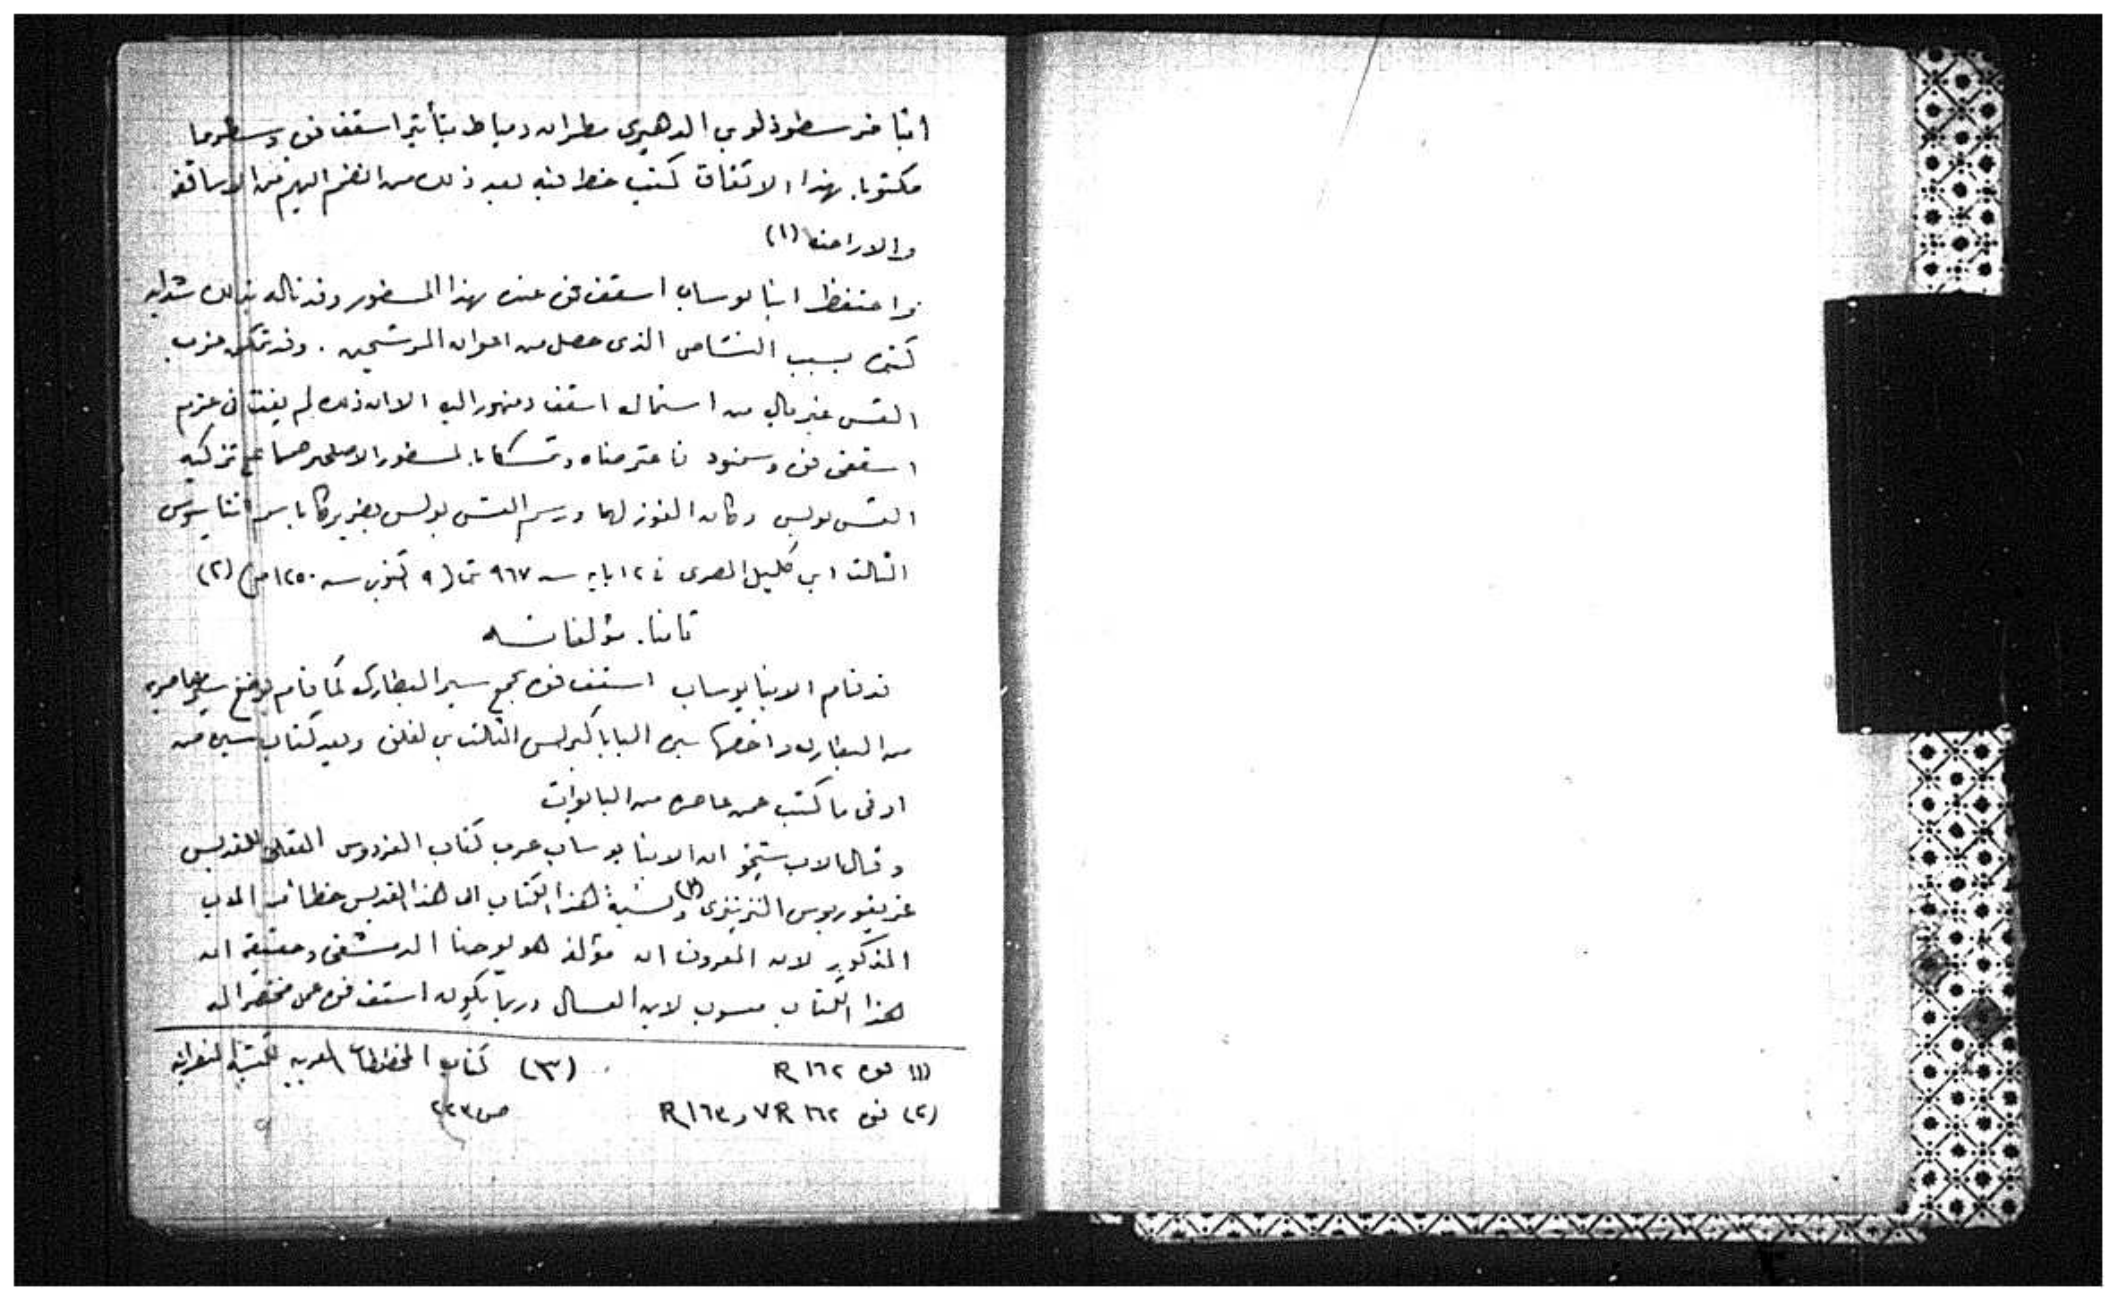 أنبا خرسطوذلوس الدهيري مطران دمياط بتأثير اسقف فوه وسطروا
مكتوبا بهذا الاتفاق كتب خط فيه بعد ذلك من انضم اليهم من الاساقفة
والاراخنة (١)
واحتفظ انبا يوساب اسقف فوه عنده بهذا المسطور وقد ناله بذلك شدائد
كثيره بسبب التشاحن الذى حصل من اعوان المرشحين . وقد تمكن حزب
القس غبريال من استمالة اسقف دمنهور اليه الا ان ذلك لم يفت فى عزم
اسقفى فوه وسمنود فاعترضاه وتمسكا بالمسطور الاصلى على تزكية
القس بولس وكان الفوز لهما ورسم القس بولس بطريركا باسم اثناسيوس
الثالث ابن كليل المصرى فى ١٢ بابه سنة ٩٦٧ ش (٩ اكتوبر سنة ١٢٥٠ م) (٢)
ثامنا. مؤلفاته
قد قام الانبا يوساب اسقف فوه بجمع سير البطاركة كما قام بوضع سير معاصريه
من البطاركة واخصها سيرة البابا كيرلس الثالث بن لقلق ويعد كتاب سيره من
اوفى ما كتب عمن عاصره من البابوات
وقال الاب شيخو ان الانبا يوساب عرب كتاب الفردوس العقلى للقديس
غريغوريوس النزينزى (٣) ونسبة هذا الكتاب الى هذا القديس خطا من الاب
المذكور لان المعروف ان مؤلفه هو يوحنا الدمشقى وحقيقة ان
هذا الكتاب منسوب لابن العسال وربما يكون اسقف فوه عمل مختصرا له
(١) فوه ١٦٢ R
(٢) فوه ١٦٢ VR و ١٦٣ R
(٣) كتاب المخطوطات العربية لكتبة النصرانية
ص ٢٢٣